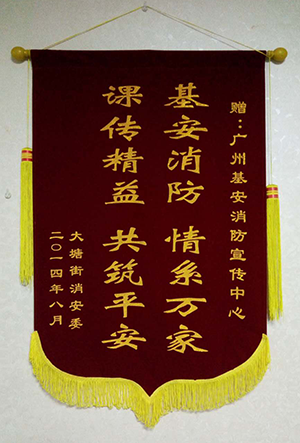 赠：广州基安消防宣传中心
基安消防 情系万家
课传精益 共筑平安
大塘街消安委
二〇一四年八月